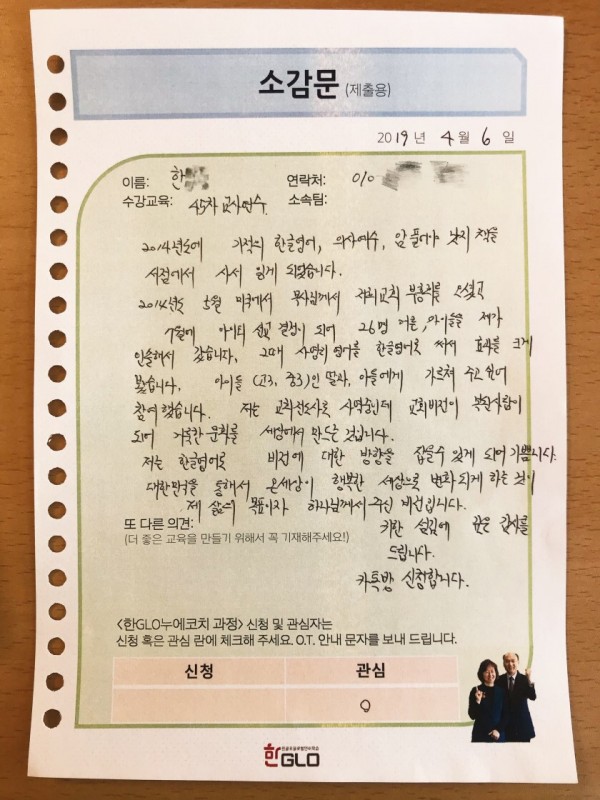 소감문 (제출용)
2019년 4월 6일
이름: 한
연락처: 010
수강교육: 45차 교사연수
소속팀:
2014년도에 기적의 한글영어, 의사예수, 암 풀어야 낫지 책을
서점에서 사서 읽게 되었습니다.
2014년도 5월 미국에서 목사님께서 저희교회 부흥회를 오셨고
7월에 아이티 선교 결정이 되어 26명 어른, 아이들을 제가
인솔해서 갔습니다. 그때 사영리 영어를 한글영어로 써서 효과를 크게
봤습니다. 아이들 (고3, 중3)인 딸과, 아들에게 가르쳐 주고 싶어
참여했습니다. 저는 교회전도사로 사역중인데 교회비전이 복된사람이
되어 거룩한 문화를 세상에서 만드는 것입니다.
저는 한글영어로 비전에 대한 방향을 잡을수 있게 되어 기쁩니다.
대한민국을 통해서 온세상이 행복한 세상으로 변화되게 하는 것이
제 삶의 목표이자 하나님께서 주신 비전입니다.
또 다른 의견:
(더 좋은 교육을 만들기 위해서 꼭 기재해주세요!)
귀한 섬김에 깊은 감사를
드립니다.
카톡방 신청합니다.
<한GLO누에코치 과정> 신청 및 관심자는
신청 혹은 관심 란에 체크해 주세요. O.T. 안내 문자를 보내 드립니다.
신청 관심
O
한GLO